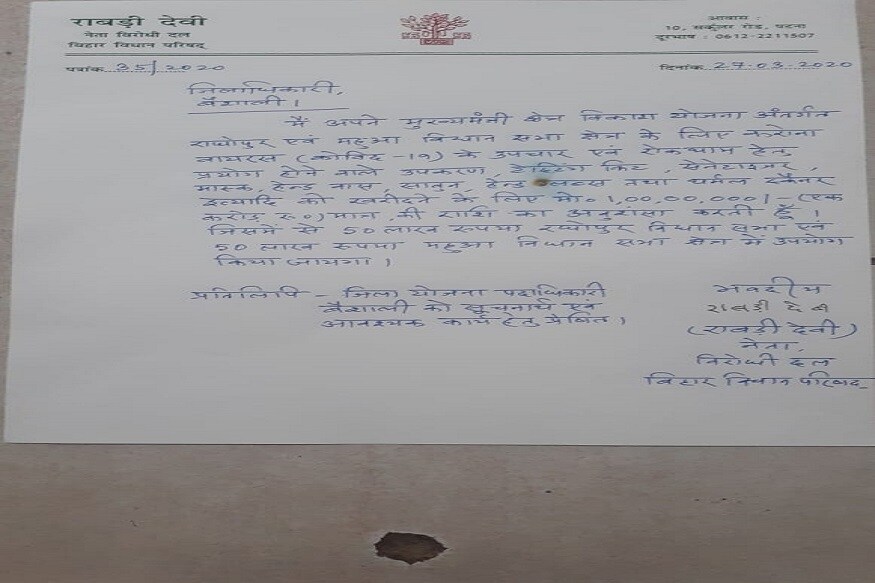 राबड़ी देवी
नेता विरोधी दल
बिहार विधान परिषद्
आवास :
10, सर्कुलर रोड, पटना
दूरभाष : 0612-2211507
पत्रांक 35/2020
दिनांक 27-03-2020
जिलाधिकारी,
वैशाली।
मैं अपने मुख्यमंत्री क्षेत्र विकास योजना अंतर्गत
राघोपुर एवं महुआ विधान सभा क्षेत्र के लिए करोना
वायरस (कोविद -19) के उपचार एवं रोकथाम हेतु
प्रयोग होने वाले उपकरण, टेस्टिंग किट, सेनेटाइजर,
मास्क, हैन्ड वास, साबुन, हैन्ड ग्लब्स तथा थर्मल स्कैनर
इत्यादि को खरीदने के लिए मो० 1,00,00,000/- (एक
करोड़ रु०) मात्र, की राशि का अनुशंसा करती हूँ।
जिसमें से 50 लाख रूपया राघोपुर विधान सभा एवं
50 लाख रूपया महुआ विधान सभा क्षेत्र में उपयोग
किया जायगा।
प्रतिलिपि - जिला योजना पदाधिकारी
वैशाली को सूचनार्थ एवं
आवश्यक कार्य हेतु प्रेषित।
भवदीय
राबड़ी देवी
(राबड़ी देवी)
नेता,
विरोधी दल
बिहार विधान परिषद